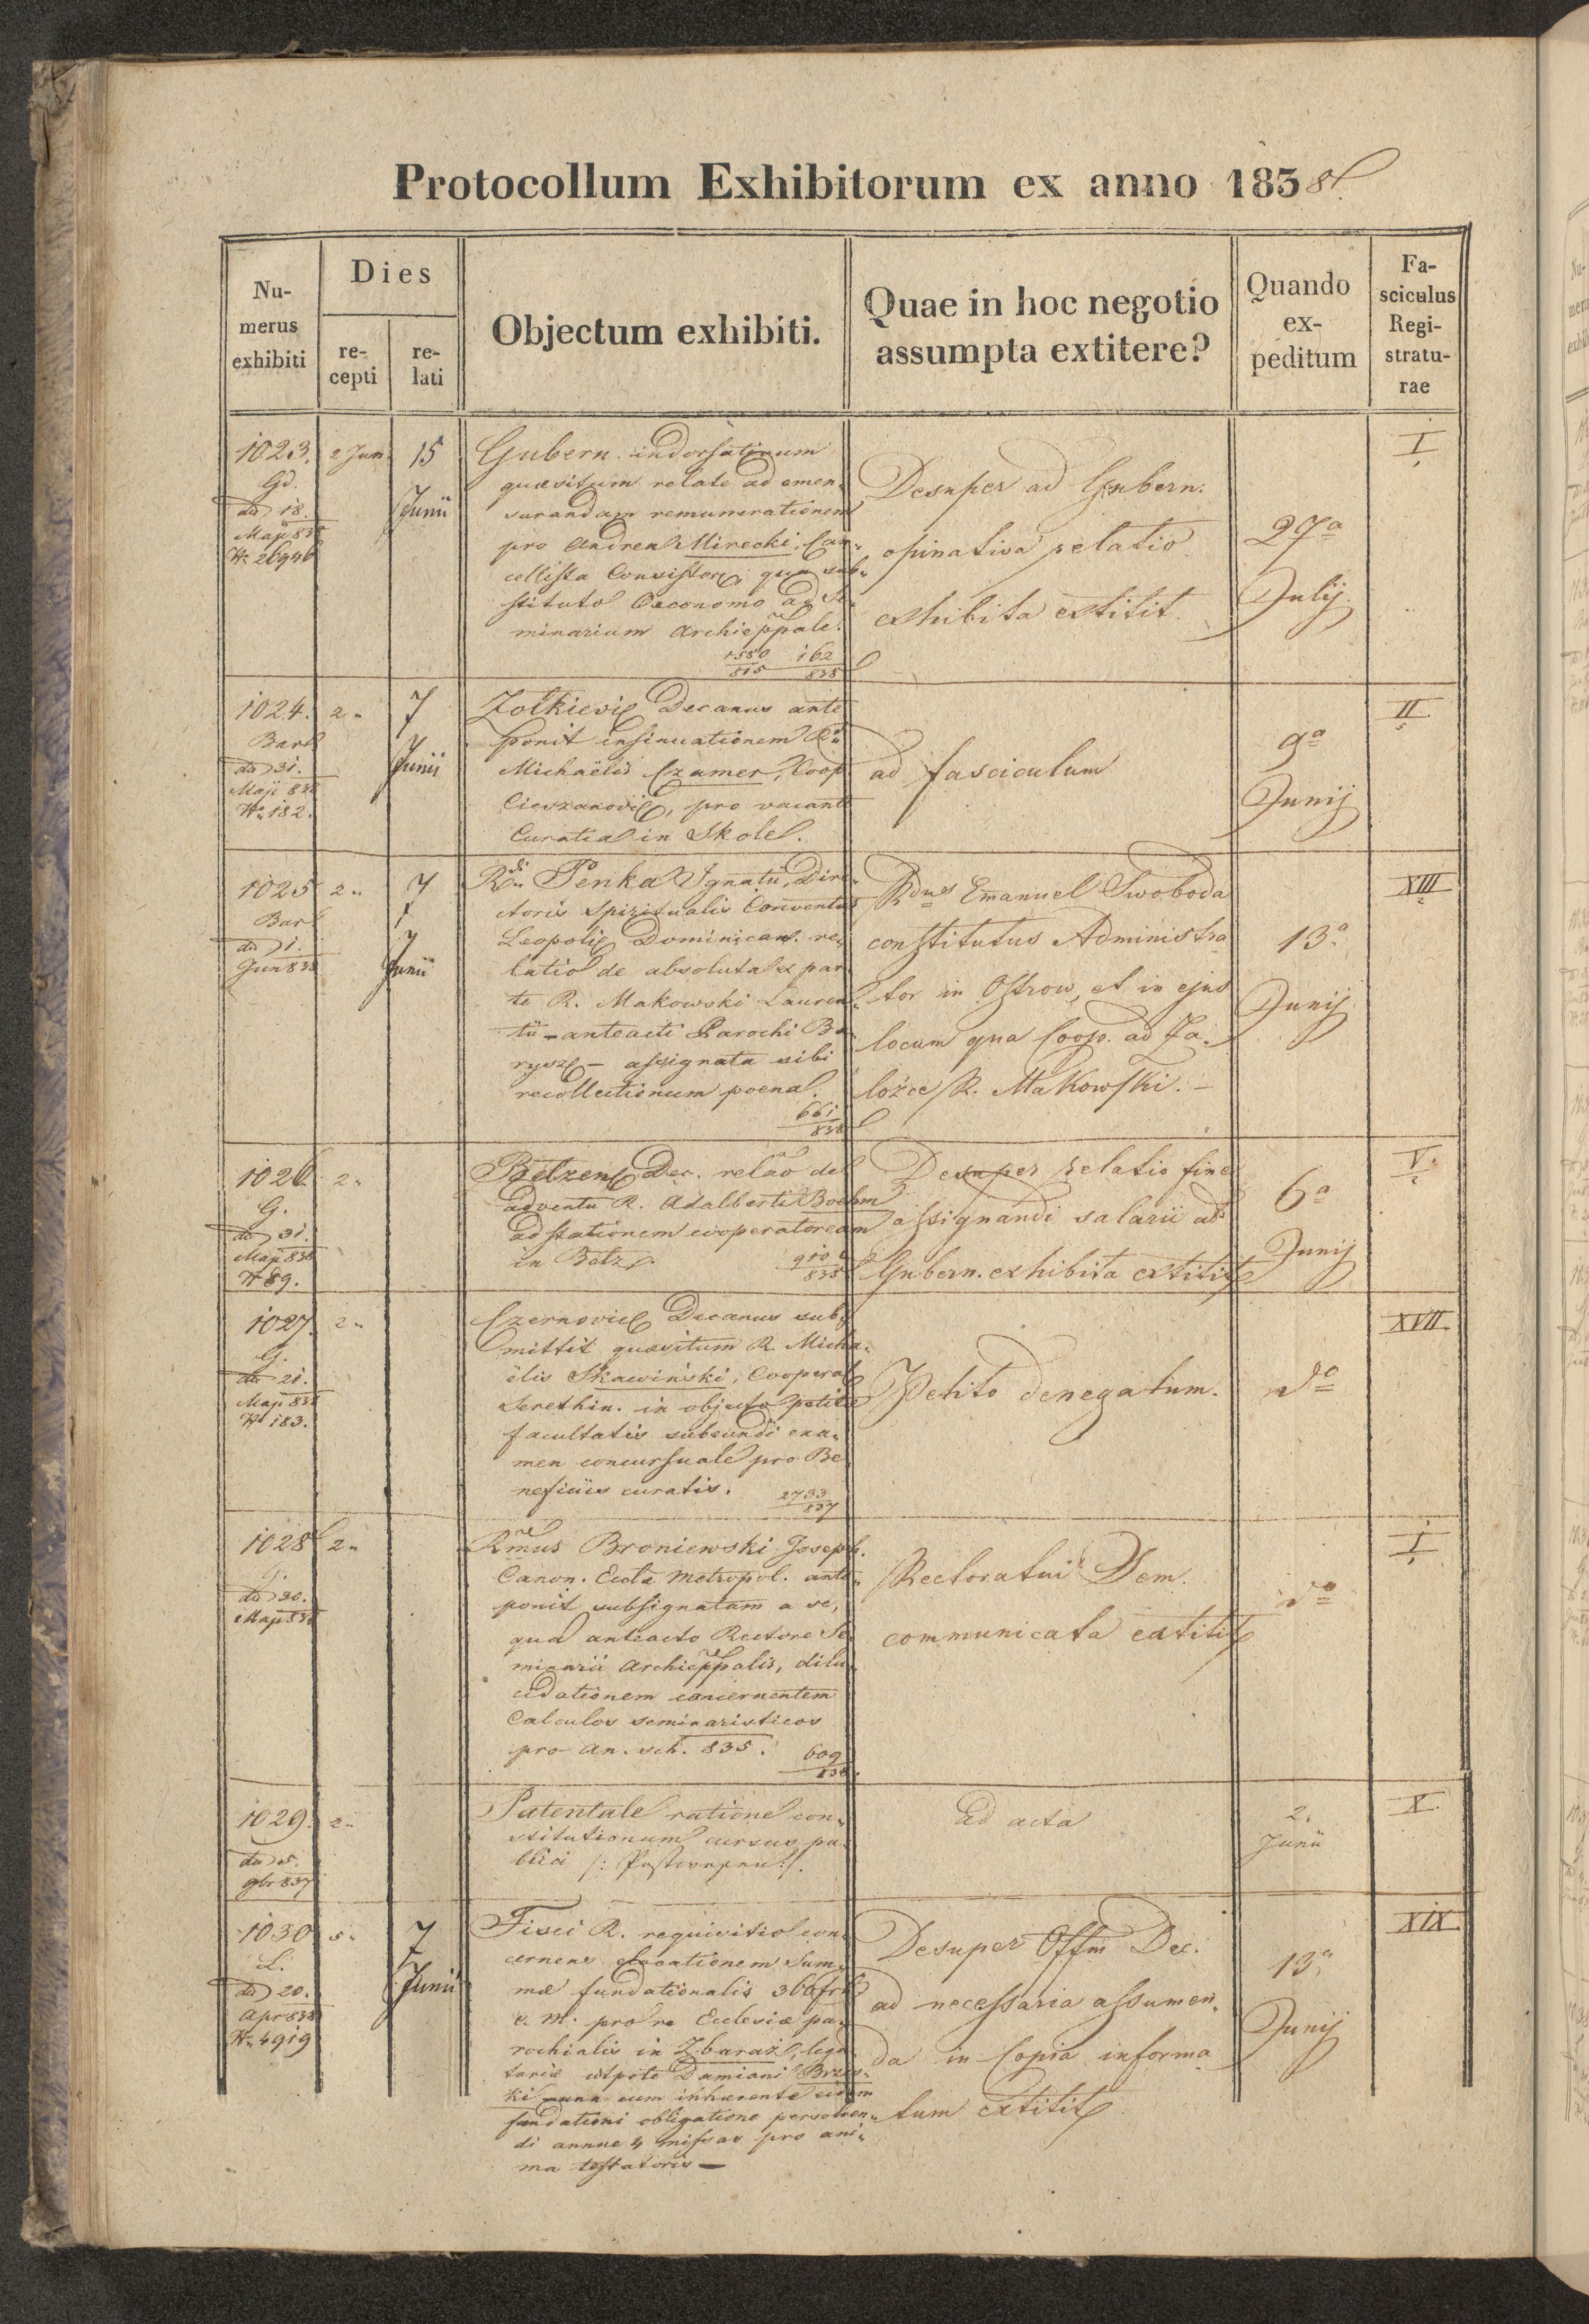 Protocollum Exhibitorum ex anno 1838
Nu-
merus
exhibiti
Dies
re-
cepti
re-
lati
Objectum exhibiti.
Quae in hoc negotio
assumpta extitere?
Quando
ex-
peditum
Fa-
sciculus
Regi-
stratu-
rae
1023.
Gd.
dd 18.
Maji 838
N. 26946
2 Jun.
15
Junii
Gubern. indorsativum
quaesitum relate ad emen„
surandam remunerationem
pro Andrea Mirecki, Can„
cellista Consistor, qua sub„
stituto Oeconomo ad Se„
minarium Archieppale.
1550 162
815 838
Desuper ad Gubern.
opinativa relatio
exhibita extitit.
27a
Julij
I
1024.
Bar
dd 31.
Maji 838
N. 182.
2„
7
Junii
Zołkievi Decanus ante
ponit insinuationem Rdi
Michaëlis Czamer, Coop.
Cieszanovi, pro vacante
Curatia in Skole.
ad fasciculum
9a
Junij
II
1025
Bar
dd 1.
Jun 838
2„
7
Junii
Rdi Penka Ignatii, Dire„
ctoris Spiritualis Conventus
Leopoli Dominican. re„
latio de absoluta ex par„
te R. Makowski Lauren„
tii - anteacti Parochi Ba„
rysz - assignata sibi
recollectionum poena.
661
838
Rdus Emanuel Swoboda
constitutus Administra
tor in Ostrow, et in ejus
locum qua Coop. ad Za„
łoźce R. Makowski. -
13a
Junij
XIII
1026
G.
dd 31.
Maji 838
N 89.
2„
Bełzen Dec. relao de
adventu R. Adalberti Boehm
ad stationem cooperatoream
in Bełz.
910
838
Desuper relatio fine
assignandi salarii ad
Gubern. exhibita extitit
6a
Junij
V.
1027.
G.
dd 21.
Maji 838
N 183.
2„
Czernovic Decanus sub„
mittit quaesitum R. Micha„
ëlis Skawiński, Cooperat
Serethin. in objecto petitae
facultatis subeundi exa„
men concursuale pro Be„
neficiis curatis.
2733
837
Petito denegatum.
do
XVII
1028
dd 30.
Maji 838
2„
Rmus Broniewski Joseph.
Canon. Eccla Metropol. ante„
ponit subsignatam a se,
qua anteacto Rectore Se„
minarii Archieppalis, dilu„
cidationem concernentem
Calculos seminaristicos
pro an. sch. 835.
609
838.
Rectoratui Sem.
communicata extitit
do
I
1029.
dd 5.
9br 837
2„
Patentale ratione con„
stitutionum cursus pu„
blici
ad acta
2.
Junii
X.
1030
L.
dd 20.
Apr 838
N. 4919
5„
7
Junii
Fisci R. requisitio con„
cernens elocationem Sum„
mae fundationalis 360 fr
c. M. pro re Ecclesiae pa„
rochialis in Zbaraż, lega„
taria utpote Damiani
ki - una cum inhaerente eidem
fundationi obligatione persolven„
di annue 4 missas pro ani„
ma testatoris -
Desuper Offm Dec.
ad necessaria assumen„
da in Copia informa
tum extitit
13a
Junij
XIX